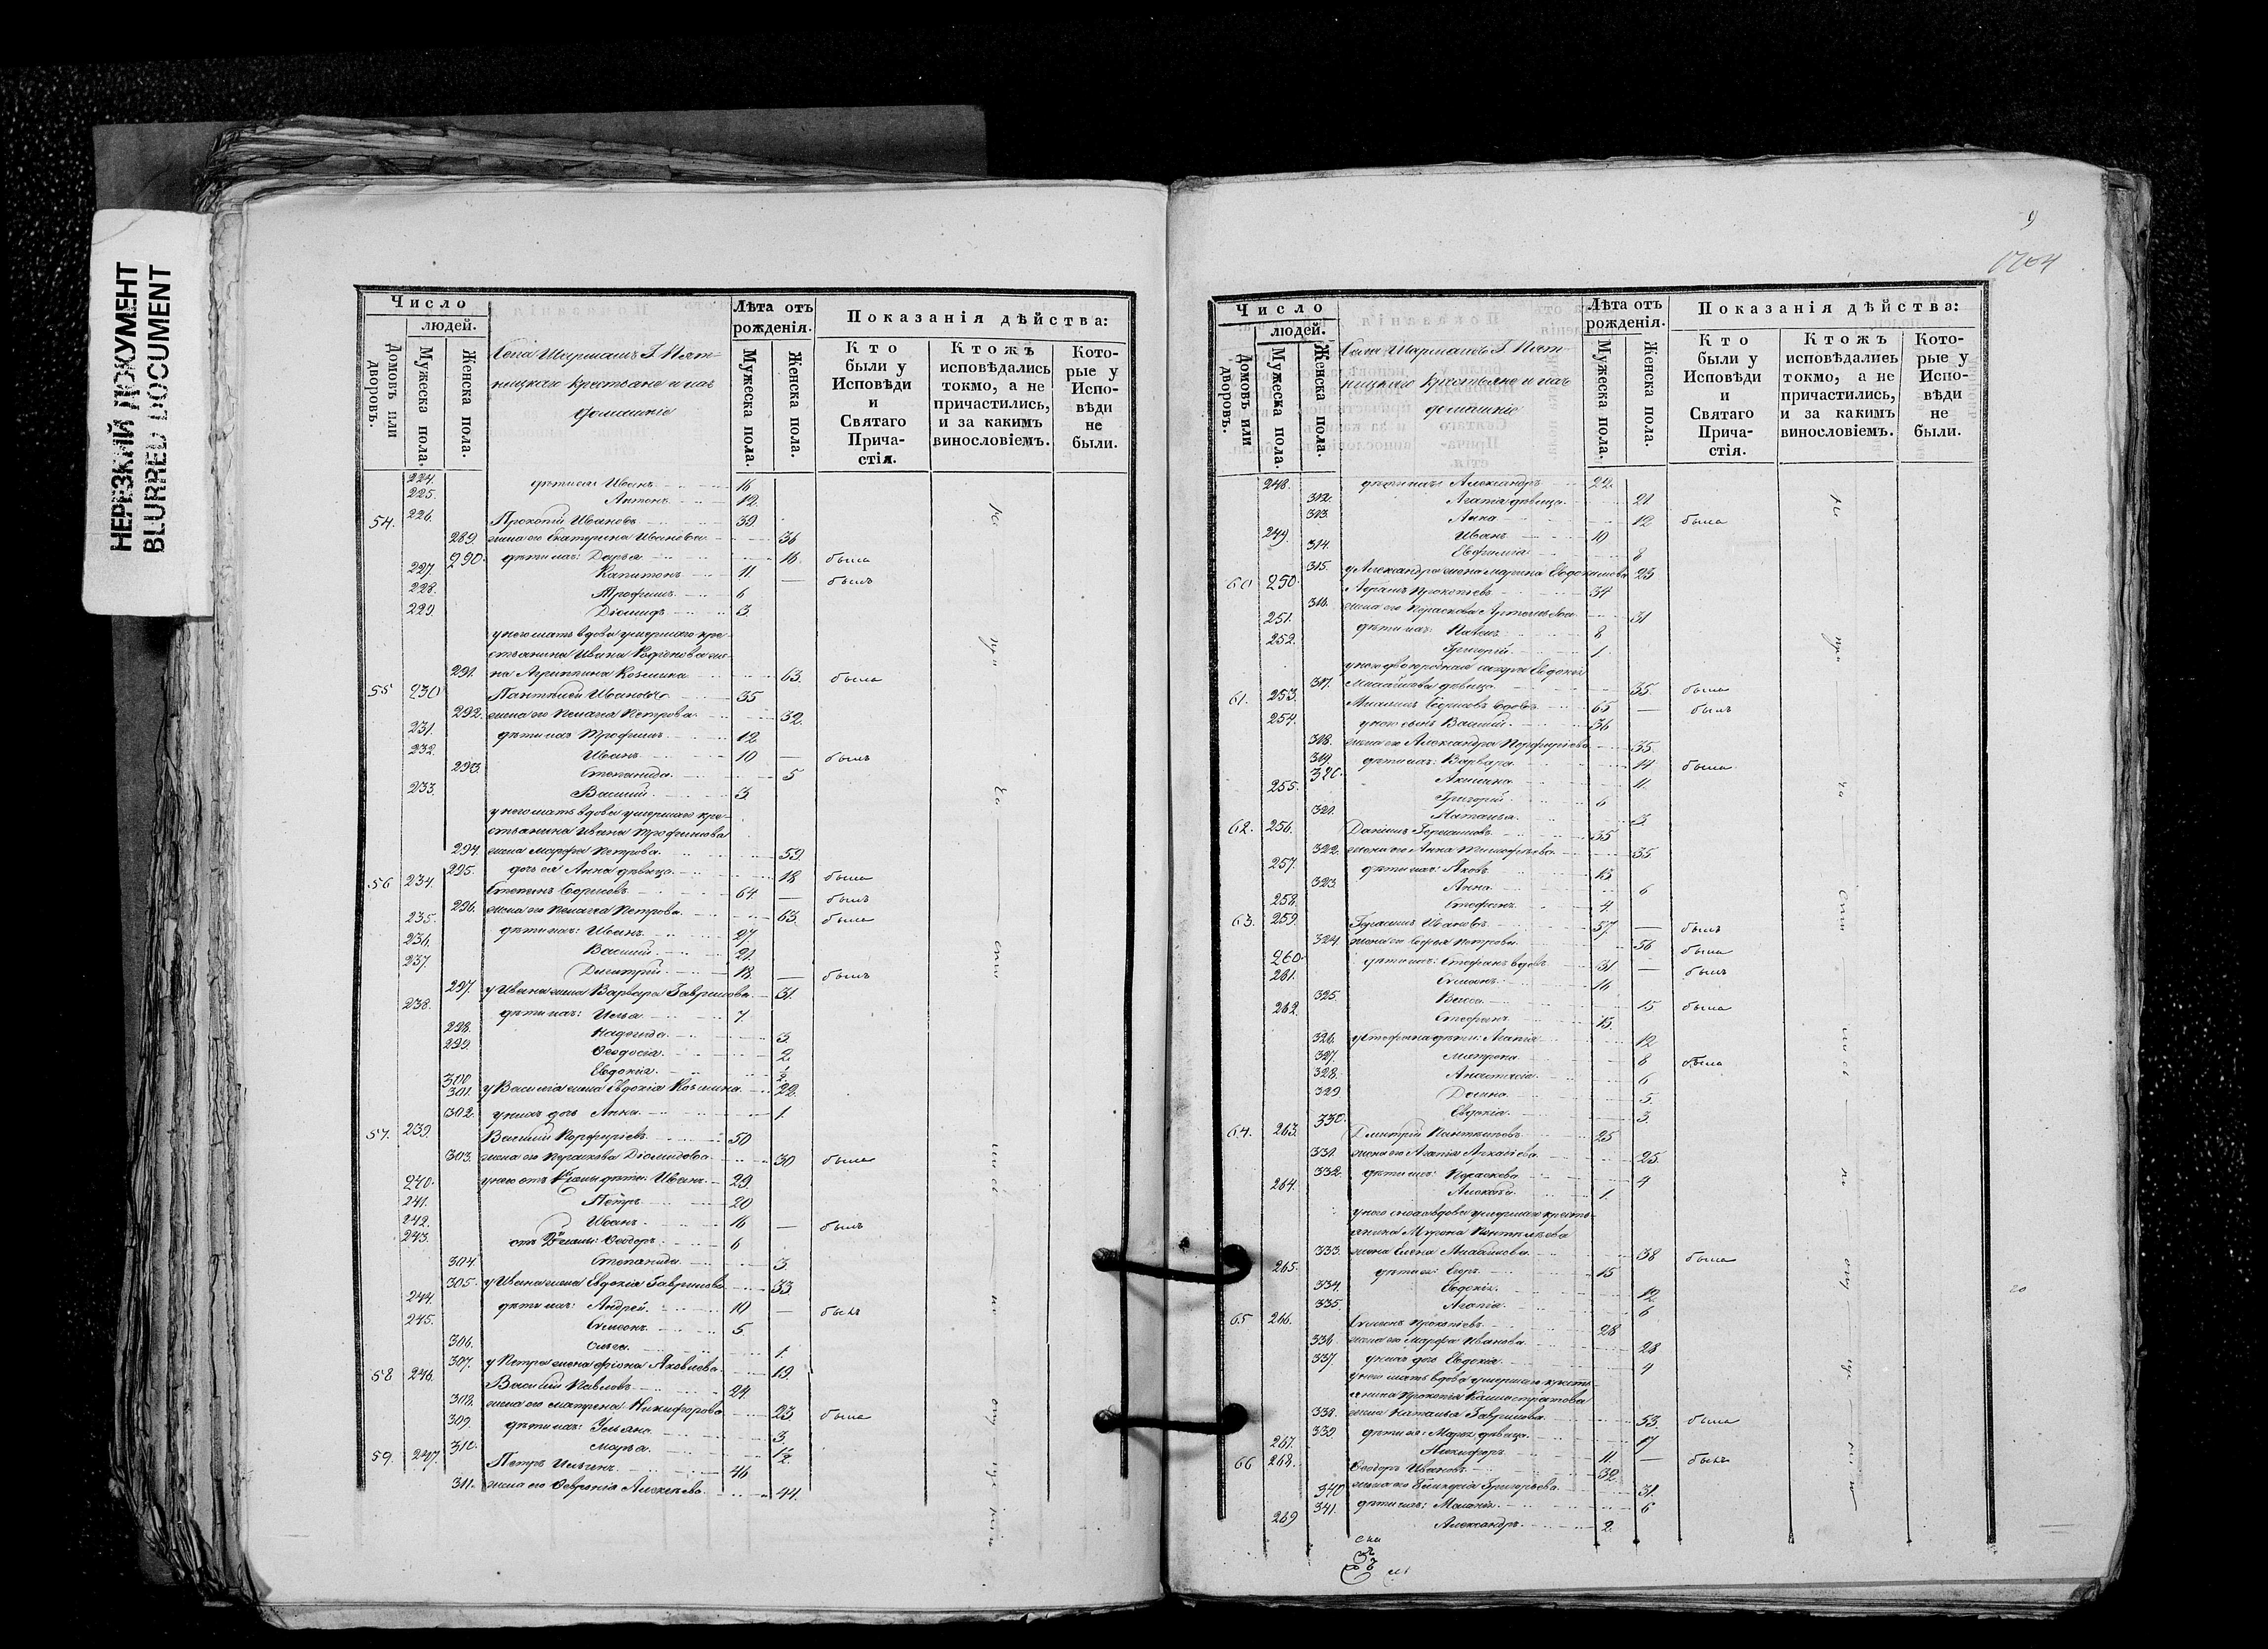 НЕРЕЗКИЙ ДОКУМЕНТ
BLURRED DOCUMENT
Число
людей.
Домовъ или дворовъ.
Мужеска пола.
Женска пола.
Села
Пят-
ницкаго крестьяне и ихъ
домашніе
Лѣта отъ рожденія.
Мужеска пола.
Женска пола.
Показанія дѣйства:
Кто были у Исповѣди и Святаго Прича-стія.
Ктожъ исповѣдались токмо, а не причастились, и за какимъ винословіемъ.
Кото-рые у Испо-вѣди не были.
224. Иванъ 16
225. Антонъ 12
54. 226. Прокопій Ивановъ 39
289. жена его Екатерина Иванова 36
290. дѣти ихъ: Дарья 16 была
227. Капитонъ 11 — былъ
228. Трофимъ 6
229. Діомидъ 3
у него мать вдова умершаго кре-
стьянина Ивана
291. на Агриппина Козмина 63 была
55 230 Пантелей Ивановъ 35
292. жена его Пелагея Петрова 32
231. дѣти ихъ Трофимъ 12
232. Иванъ 10 — былъ
293. Степанида 5
233. Василій 3
у него мать вдова умершаго кре-
стьянина Ивана Трофимова
294. жена Марфа Петрова 59
295. дочь ея Анна дѣвица 18 была
56 234. Степанъ Борисовъ 64 — былъ
296. жена его Пелагея Петрова 63 была
235. дѣти ихъ: Иванъ 27
236. Василій 21
237. Димитрій 18 — былъ
297. у Ивана жена Варвара Гаврилова 31
238. дѣти ихъ: Илья 7
298. Надежда 5
299. Ѳеодосія 2
300 Евдокія ½
301. у Василія жена Евдокія Козмина 22
302. у нихъ дочь Анна 1
57. 239. Василій Порфиріевъ 50
303. жена его Параскева Діомидова 30 была
240. у него отъ 1й жены дѣти: Иванъ 29
241. Петръ 20
242. Иванъ 16 — былъ
243. отъ 2й жены: Ѳеодоръ 6
304. Степанида 3
305. у Ивана жена Евдокія Гаврилова 33
244. дѣти ихъ: Андрей 10 — былъ
245. Симеонъ 5
306. Ольга 1
307. у Петра жена Яковлева 19
58 246. Василій Павловъ 24
308. жена его Матрена Никифорова 23 была
309. дѣти ихъ: Ульяна 3
310. Марья ½
59. 247. Петръ Ильинъ 46
311. жена его Ѳевронія Алексѣева 44
9
Число
людей.
Домовъ или дворовъ.
Мужеска пола.
Женска пола.
Села
Пят-
ницкаго крестьяне и ихъ
домашніе
Лѣта отъ рожденія.
Мужеска пола.
Женска пола.
Показанія дѣйства:
Кто были у Исповѣди и Святаго Прича-стія.
Ктожъ исповѣдались токмо, а не причастились, и за какимъ винословіемъ.
Кото-рые у Испо-вѣди не были.
248. дѣти ихъ: Александръ 22
312. Агапія дѣвица 21
313. Анна 12 была
249 Иванъ 10
314. Евфимія 8
315. у Александра жена Марина Евдокимова 23
60 250. Абрамъ Прокопіевъ 34
316. жена его Параскева 31
251. дѣти ихъ: Павелъ 8
252. Григорій 1
у него двоюродная сестра Евдокія
317. Михайлова дѣвица 35 была
61. 253. Михаилъ Борисовъ вдовъ 65 — былъ
254. у него сынъ Василій 36
318. жена его Александра Порфиріева 35
319. дѣти ихъ: Варвара 14 была
320. Акилина 11
255. Григорій 6
321. Наталья 3
62. 256. Даніилъ Герасимовъ 35
322. жена его Анна Тимофѣева 35
257. дѣти ихъ: Яковъ 13
323 Анна 6
258. Стефанъ 4
63. 259. Герасимъ Ивановъ 57 — былъ
324. жена его Софья Петрова 56 была
260 дѣти ихъ: Стефанъ вдовъ 31 — былъ
261. Симеонъ 16
325. Васса 15 была
262. Стефанъ 15
326. у Стефана дѣти: Агапія 12
327. Матрона 8 была
328. Анастасія 6
329. Домна 5
330. Евдокія 3
64. 263. Димитрій Пантелѣевъ 25
331. жена его Агапія Аркадіева 25
332. дѣти ихъ: Параскева 4
264. Алексѣй 1
у него сноха вдова умершаго кресть-
янина Мирона Пантелѣева
333. жена Елена Михайлова 38 была
265. дѣти ея: Егоръ 15
334. Евдокія 12
335. Агапія 6
65 266. Симеонъ Прокопіевъ 28
336. жена его Марфа Иванова 28
337. у нихъ дочь Евдокія 4
у него мать вдова умершаго кресть-
янина Прокопія Калистратова
338. жена Наталья Гаврилова 53 была
339 дѣти ея: дѣвица 17
267. Никифоръ 11 — былъ
66 268. Ѳеодоръ Ивановъ 32
340 жена его Гликерія Григорьева 31
341. дѣти ихъ: Меланія 6
269 Александръ 2